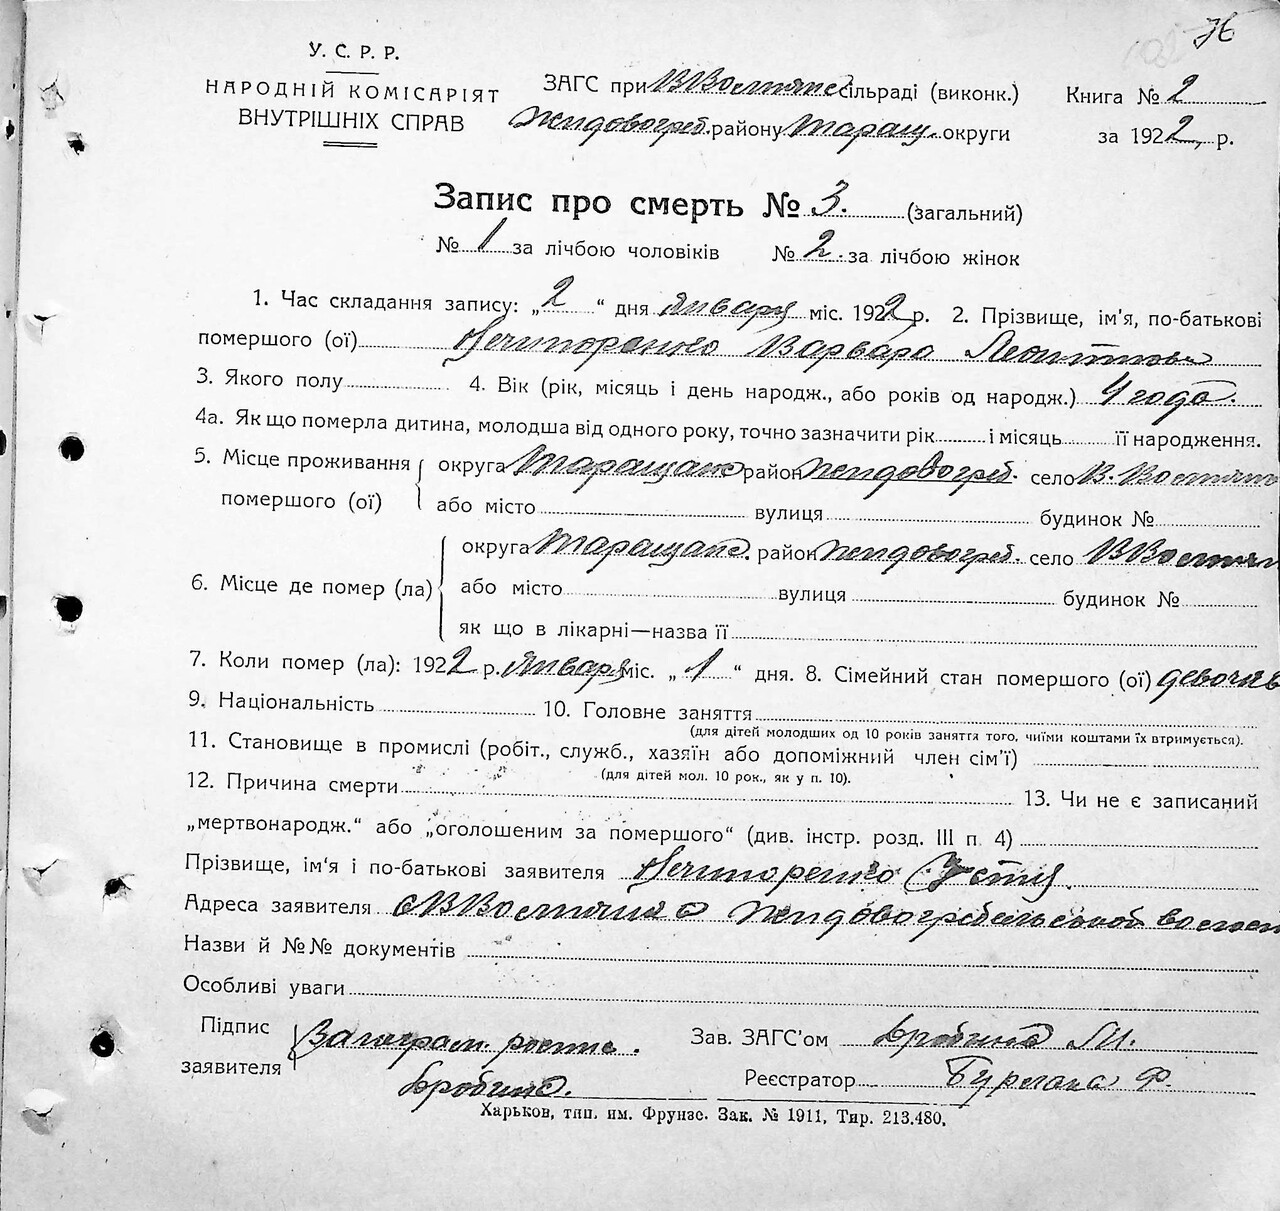 76
У. С. Р. Р.
НАРОДНІЙ КОМІСАРІЯТ
ВНУТРІШНІХ СПРАВ
ЗАГС при В Восмянсе сільраді (виконк.)
Жидовогреб. району Таращ. округи
Книга № 2
за 1922 р.
Запис про смерть № 3. (загальний)
№ 1 за лічбою чоловіків № 2. за лічбою жінок
1. Час складання запису: „2“ дня Января міс. 1922 р. 2. Прізвище, ім'я, по-батькові
помершого (ої) Нечипоренко Варвара
3. Якого полу 4. Вік (рік, місяць і день народж., або років од народж.) 4 года.
4а. Як що померла дитина, молодша від одного року, точно зазначити рік і місяць її народження.
5. Місце проживання помершого (ої) округа Таращанс район Жидовогреб. село В.
або місто вулиця будинок №
6. Місце де помер (ла) округа Таращанс. район Жидовогреб. село В
або місто вулиця будинок №
як що в лікарні—назва її
7. Коли помер (ла): 1922 р. Января міс. „1“ дня. 8. Сімейний стан помершого (ої) девочка
9. Національність 10. Головне заняття
(для дітей молодших од 10 років заняття того, чиїми коштами їх втримується).
11. Становище в промислі (робіт., служб., хазяїн або допоміжний член сім'ї)
(для дітей мол. 10 рок., як у п. 10).
12. Причина смерти 13. Чи не є записаний
„мертвонародж.“ або „оголошеним за помершого“ (див. інстр. розд. III п. 4)
Прізвище, ім'я і по-батькові заявителя Нечипоренко Устин
Адреса заявителя Жидовогребельской
Назви й №№ документів
Особливі уваги
Підпис заявителя За неграм. роспис.
Зав. ЗАГС'ом
Реєстратор Бурлака Ф.
Харьков, тип. им. Фрунзе. Зак. № 1911, Тир. 213.480.